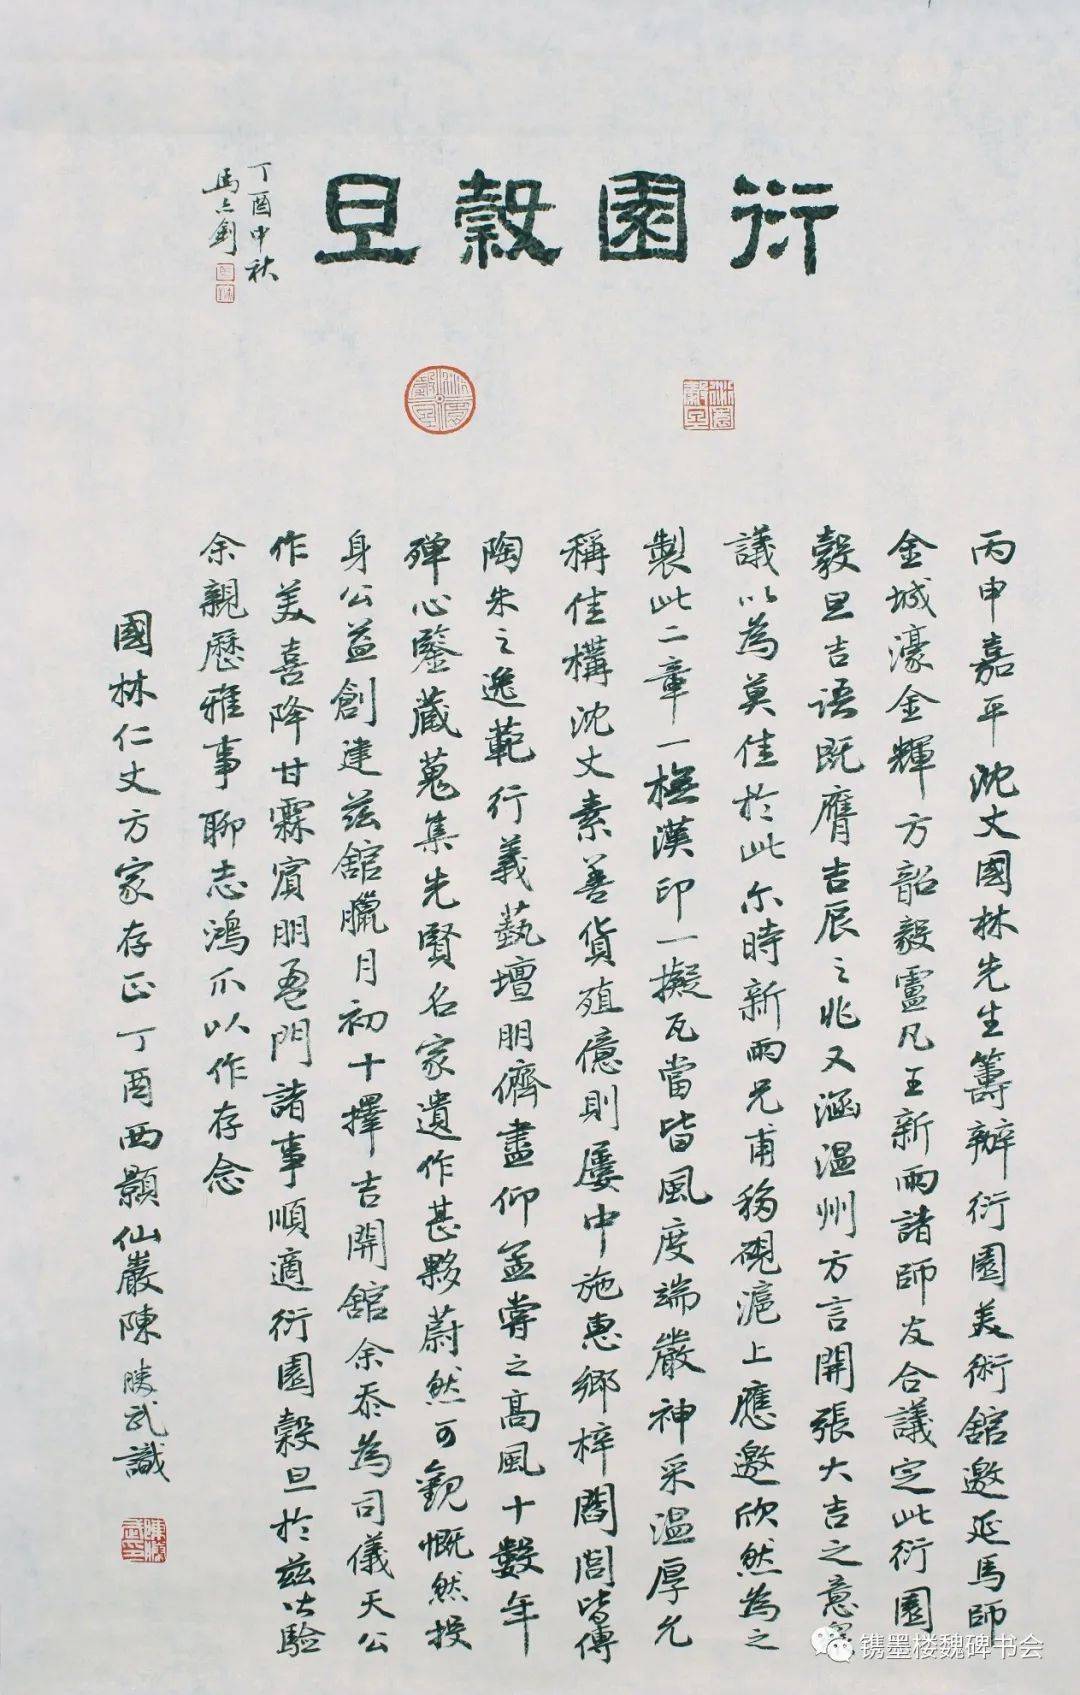 衍園穀旦
丁酉中秋
馬亾劍
丙申嘉平沈丈國林先生籌辦衍園美術館邀延馬師
金城濠金輝方韶毅盧凡王新雨諸師友合議定此衍園
穀旦吉語既膺吉辰之兆又涵温州方言開張大吉之意眾
議以為莫佳於此尔時新雨兄甫移硯滬上應邀欣然為之
製此二章一橅漢印一擬瓦當皆風度端嚴神采温厚允
稱佳構沈丈素善貨殖億則屢中施惠鄉梓閭閻皆傳
陶朱之逸範行義藝壇朋儕盡仰孟嘗之高風十數年
殫心鑒藏蒐集先賢名家遺作甚夥蔚然可觀慨然投
身公益創建兹館臘月初十擇吉開館余忝為司儀天公
作美喜降甘霖賓朋盈門諸事順適衍園穀旦於兹佔驗
余親歷雅事聊志鴻爪以作存念
國林仁丈方家存正丁酉西顥仙巖陳勝武識
镌墨楼魏碑书会